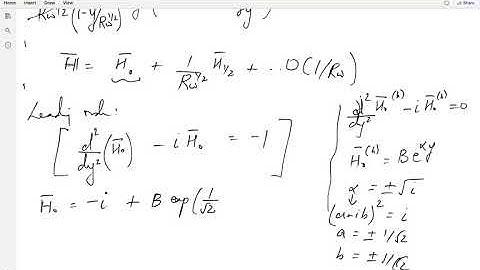 Home Insert Draw View
Rω^1/2 (1-y/Rω^1/2) dy)
H̄ = H̄₀ + 1/Rω^1/2 H̄₁/₂ + .. O(1/Rω)
Leading order:
[ d²/dy² (H̄₀) - i H̄₀ = -1 ]
H̄₀ = -i + B exp(1/√2
d²/dy² H̄₀^(h) - i H̄₀^(h) = 0
H̄₀^(h) = B e^αy
α = ±√i
(a+ib)² = i
a = ± 1/√2
b = ± 1/√2